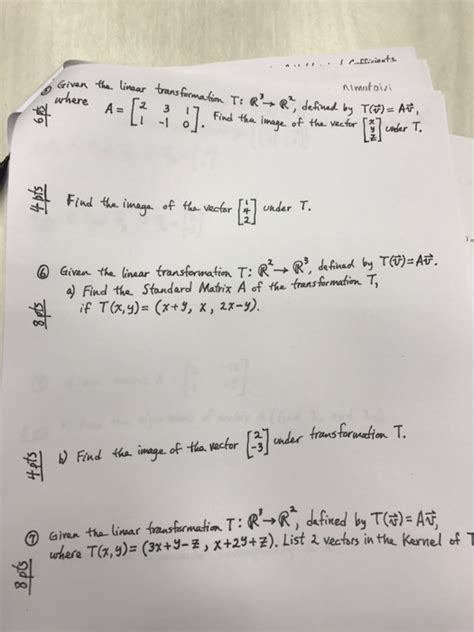 Coefficients
⑤ Given the linear transformation T: ℝ³ → ℝ², defined by T(v⃗) = Av⃗,
6 pts where A = [2 3 1; 1 -1 0]. Find the image of the vector [x; y; z] under T.
4 pts Find the image of the vector [1; 4; 2] under T.
⑥ Given the linear transformation T: ℝ² → ℝ³, defined by T(v⃗) = Av⃗.
a) Find the Standard Matrix A of the transformation T,
8 pts if T(x,y) = (x+y, x, 2x-y).
4 pts b) Find the image of the vector [2; -3] under transformation T.
⑦ Given the linear transformation T: ℝ³ → ℝ², defined by T(v⃗) = Av⃗,
where T(x,y) = (3x+y-z, x+2y+z). List 2 vectors in the Kernel of T
8 pts